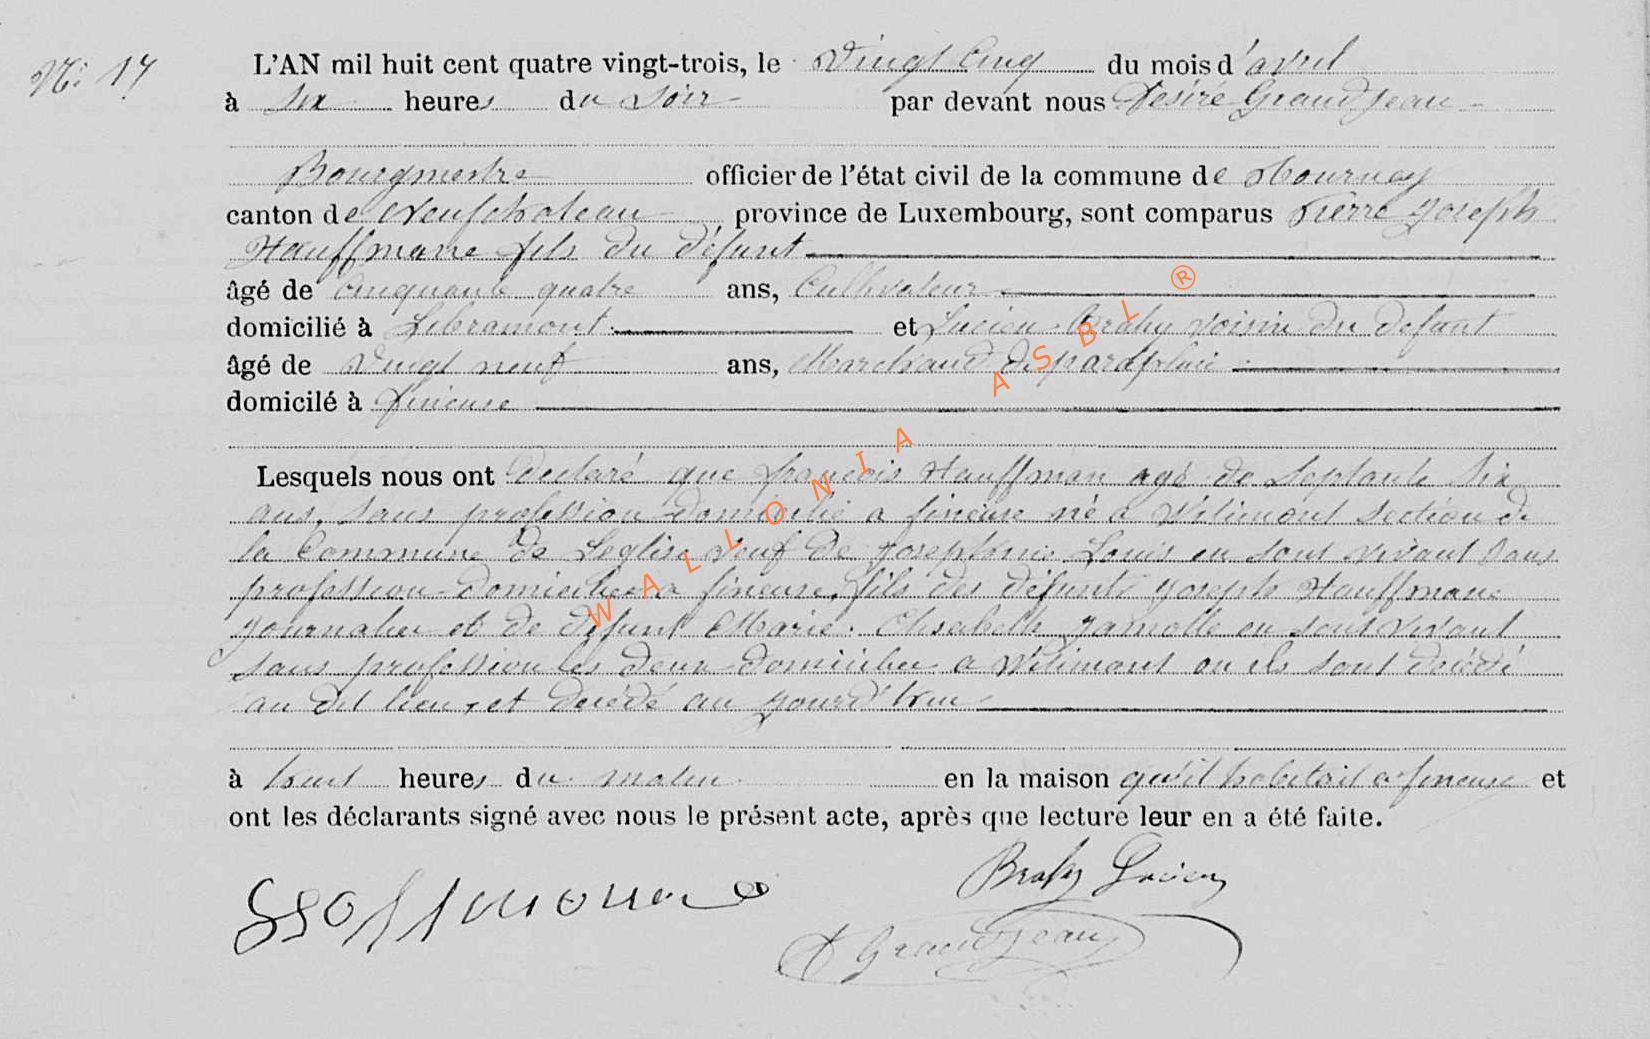 No 17
L'AN mil huit cent quatre vingt-trois, le Vingt Cinq du mois d'avril
à six heures du soir par devant nous Désiré Grandjean
Bourgmestre officier de l'état civil de la commune de Tournay
canton de Neufchateau province de Luxembourg, sont comparus Pierre Joseph
Hauffmane fils du défunt
âgé de Cinquante quatre ans, Cultivateur
domicilié à Libramont et Lucien Brahy voisin du defunt
âgé de Vingt neuf ans, Marchand de parapluie
domicilé à fineuse
Lesquels nous ont declaré que françois Hauffman agé de Septante Six
ans, Sans profession domicilié a fineuse né a Witimont Section de
la Commune de Leglise veuf de Josephine Louis en sont vivant Sans
profession domiciliée a fineuse, fils des défunts Joseph Hauffmane
journalier et de defunt Marie Elisabeth Jamotte en sont vivant
sans profession les deux domicilier a Witimont ou ils sont décédé
au dit lieu, et decédé au jourd'hui
à huit heures du matin en la maison qu'il habitait a fineuse et
ont les déclarants signé avec nous le présent acte, après que lecture leur en a été faite.
Brahy Lucien
D Grandjean
WALLONIA ASBL ®